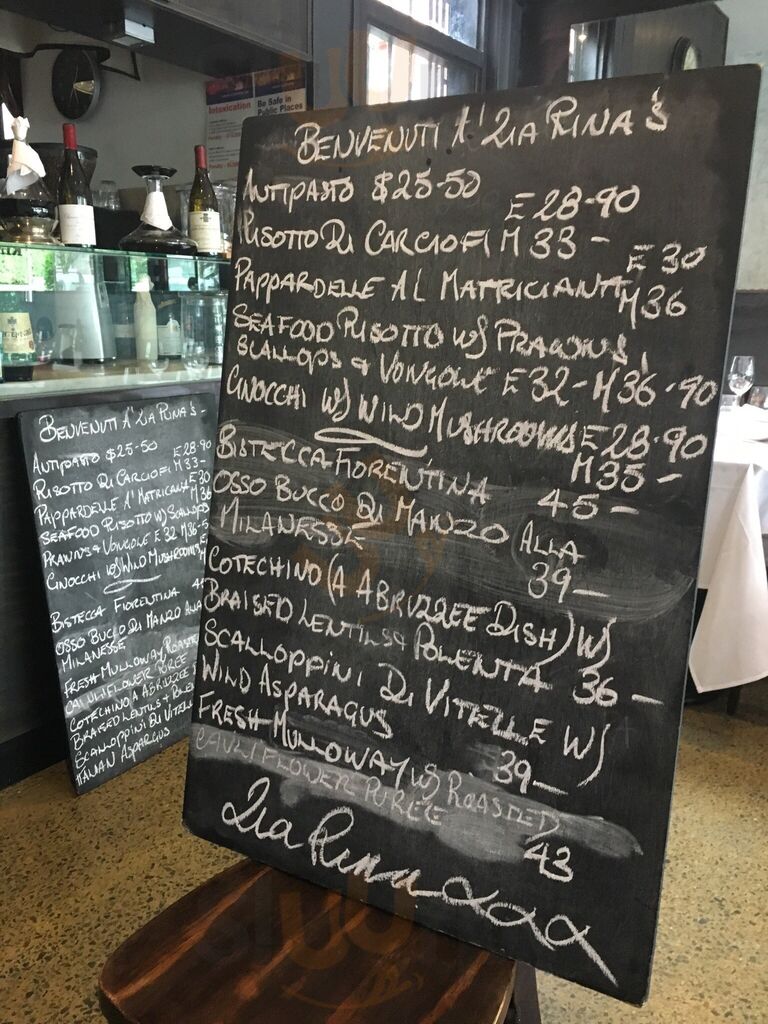 Intoxication
Be Safe in
Public Places
BENVENUTI A' ZIA RINA'S
ANTIPASTO $25-50
RISOTTO DI CARCIOFI E 28-90
M 33-
PAPPARDELLE AL MATRICIANA E 30
M36
SEAFOOD RISOTTO W/ PRAWNS,
SCALLOPS & VONGOLE E 32- M36-90
GNOCCHI W/ WILD MUSHROOMS E28-90
M35-
BISTECCA FIORENTINA 45-
OSSO BUCCO DI MANZO ALLA
MILANESSE 39-
COTECHINO (A ABRUZZEE DISH) W/
BRAISED LENTILS & POLENTA 36-
SCALLOPPINI DI VITELLE W/
WILD ASPARAGUS 39-
FRESH MULLOWAY W/ ROASTED
CAULIFLOWER PUREE 43
Zia Rina xxx
BENVENUTI A' ZIA RINA'S-
ANTIPASTO $25-50
RISOTTO DI CARCIOFI E 28-90
M 33-
PAPPARDELLE A' MATRICIANA E30
M36
SEAFOOD RISOTTO W/ SCALLOPS
PRAWNS & VONGOLE E 32 M36-5
GNOCCHI W/ WILD MUSHROOMS
BISTECCA FIORENTINA
OSSO BUCCO DI MANZO ALLA
MILANESSE
FRESH MULLOWAY, ROASTE
CAULIFLOWER PUREE
COTECHINO A ABRUZZEE
BRAISED LENTILS & POLEN
SCALLOPPINI DI VITELLE
ITALIAN ASPARGUS